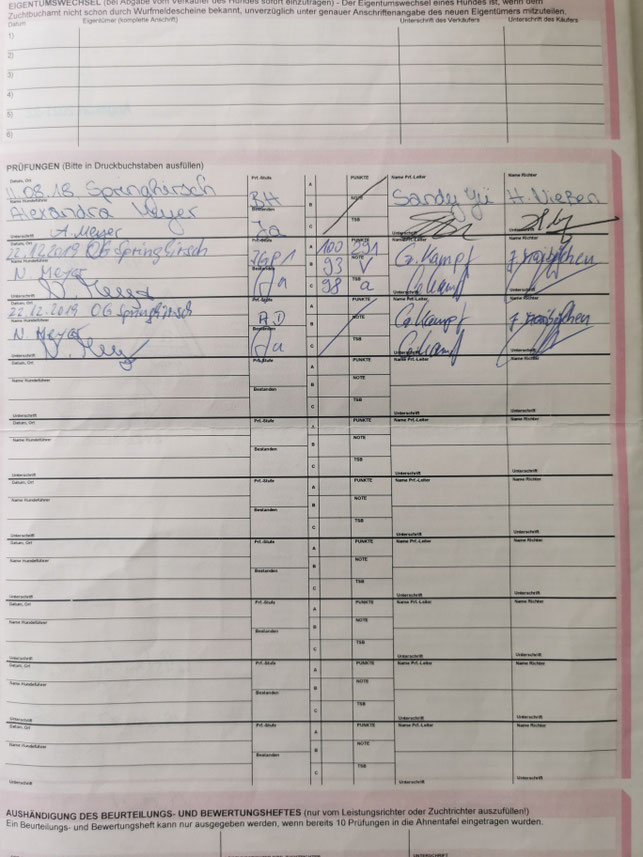 EIGENTUMSWECHSEL (bei Abgabe vom Verkäufer des Hundes sofort einzutragen) - Der Eigentumswechsel eines Hundes ist, wenn dem
Zuchtbuchamt nicht schon durch Wurfmeldescheine bekannt, unverzüglich unter genauer Anschriftenangabe des neuen Eigentümers mitzuteilen.
Datum Eigentümer (komplette Anschrift) Unterschrift des Verkäufers Unterschrift des Käufers
1)
2)
3)
4)
5)
6)
PRÜFUNGEN (Bitte in Druckbuchstaben ausfüllen)
Datum, Ort Prf.-Stufe A PUNKTE Name Prf.-Leiter Name Richter
11.08.18 Springhirsch BH Sandy H. Nießen
Name Hundeführer Bestanden B NOTE
Alexandra Meyer Ja
Unterschrift A. Meyer C TSB Unterschrift Unterschrift
Datum, Ort Prf.-Stufe A PUNKTE Name Prf.-Leiter Name Richter
22.12.2019 OG Springhirsch IGP1 100 291 G. Kampf
Name Hundeführer Bestanden B NOTE
N. Meyer Ja 93 V
Unterschrift C 98 TSB a Unterschrift Unterschrift
Datum, Ort Prf.-Stufe A PUNKTE Name Prf.-Leiter Name Richter
22.12.2019 OG Springhirsch AD G. Kampf
Name Hundeführer Bestanden B NOTE
N. Meyer Ja
Unterschrift C TSB Unterschrift Unterschrift
Datum, Ort Prf.-Stufe A PUNKTE Name Prf.-Leiter Name Richter
Name Hundeführer Bestanden B NOTE
Unterschrift C TSB Unterschrift Unterschrift
Datum, Ort Prf.-Stufe A PUNKTE Name Prf.-Leiter Name Richter
Name Hundeführer Bestanden B NOTE
Unterschrift C TSB Unterschrift Unterschrift
Datum, Ort Prf.-Stufe A PUNKTE Name Prf.-Leiter Name Richter
Name Hundeführer Bestanden B NOTE
Unterschrift C TSB Unterschrift Unterschrift
Datum, Ort Prf.-Stufe A PUNKTE Name Prf.-Leiter Name Richter
Name Hundeführer Bestanden B NOTE
Unterschrift C TSB Unterschrift Unterschrift
Datum, Ort Prf.-Stufe A PUNKTE Name Prf.-Leiter Name Richter
Name Hundeführer Bestanden B NOTE
Unterschrift C TSB Unterschrift Unterschrift
Datum, Ort Prf.-Stufe A PUNKTE Name Prf.-Leiter Name Richter
Name Hundeführer Bestanden B NOTE
Unterschrift C TSB Unterschrift Unterschrift
Datum, Ort Prf.-Stufe A PUNKTE Name Prf.-Leiter Name Richter
Name Hundeführer Bestanden B NOTE
Unterschrift C TSB Unterschrift Unterschrift
AUSHÄNDIGUNG DES BEURTEILUNGS- UND BEWERTUNGSHEFTES (nur vom Leistungsrichter oder Zuchtrichter auszufüllen!)
Ein Beurteilungs- und Bewertungsheft kann nur ausgegeben werden, wenn bereits 10 Prüfungen in die Ahnentafel eingetragen wurden.